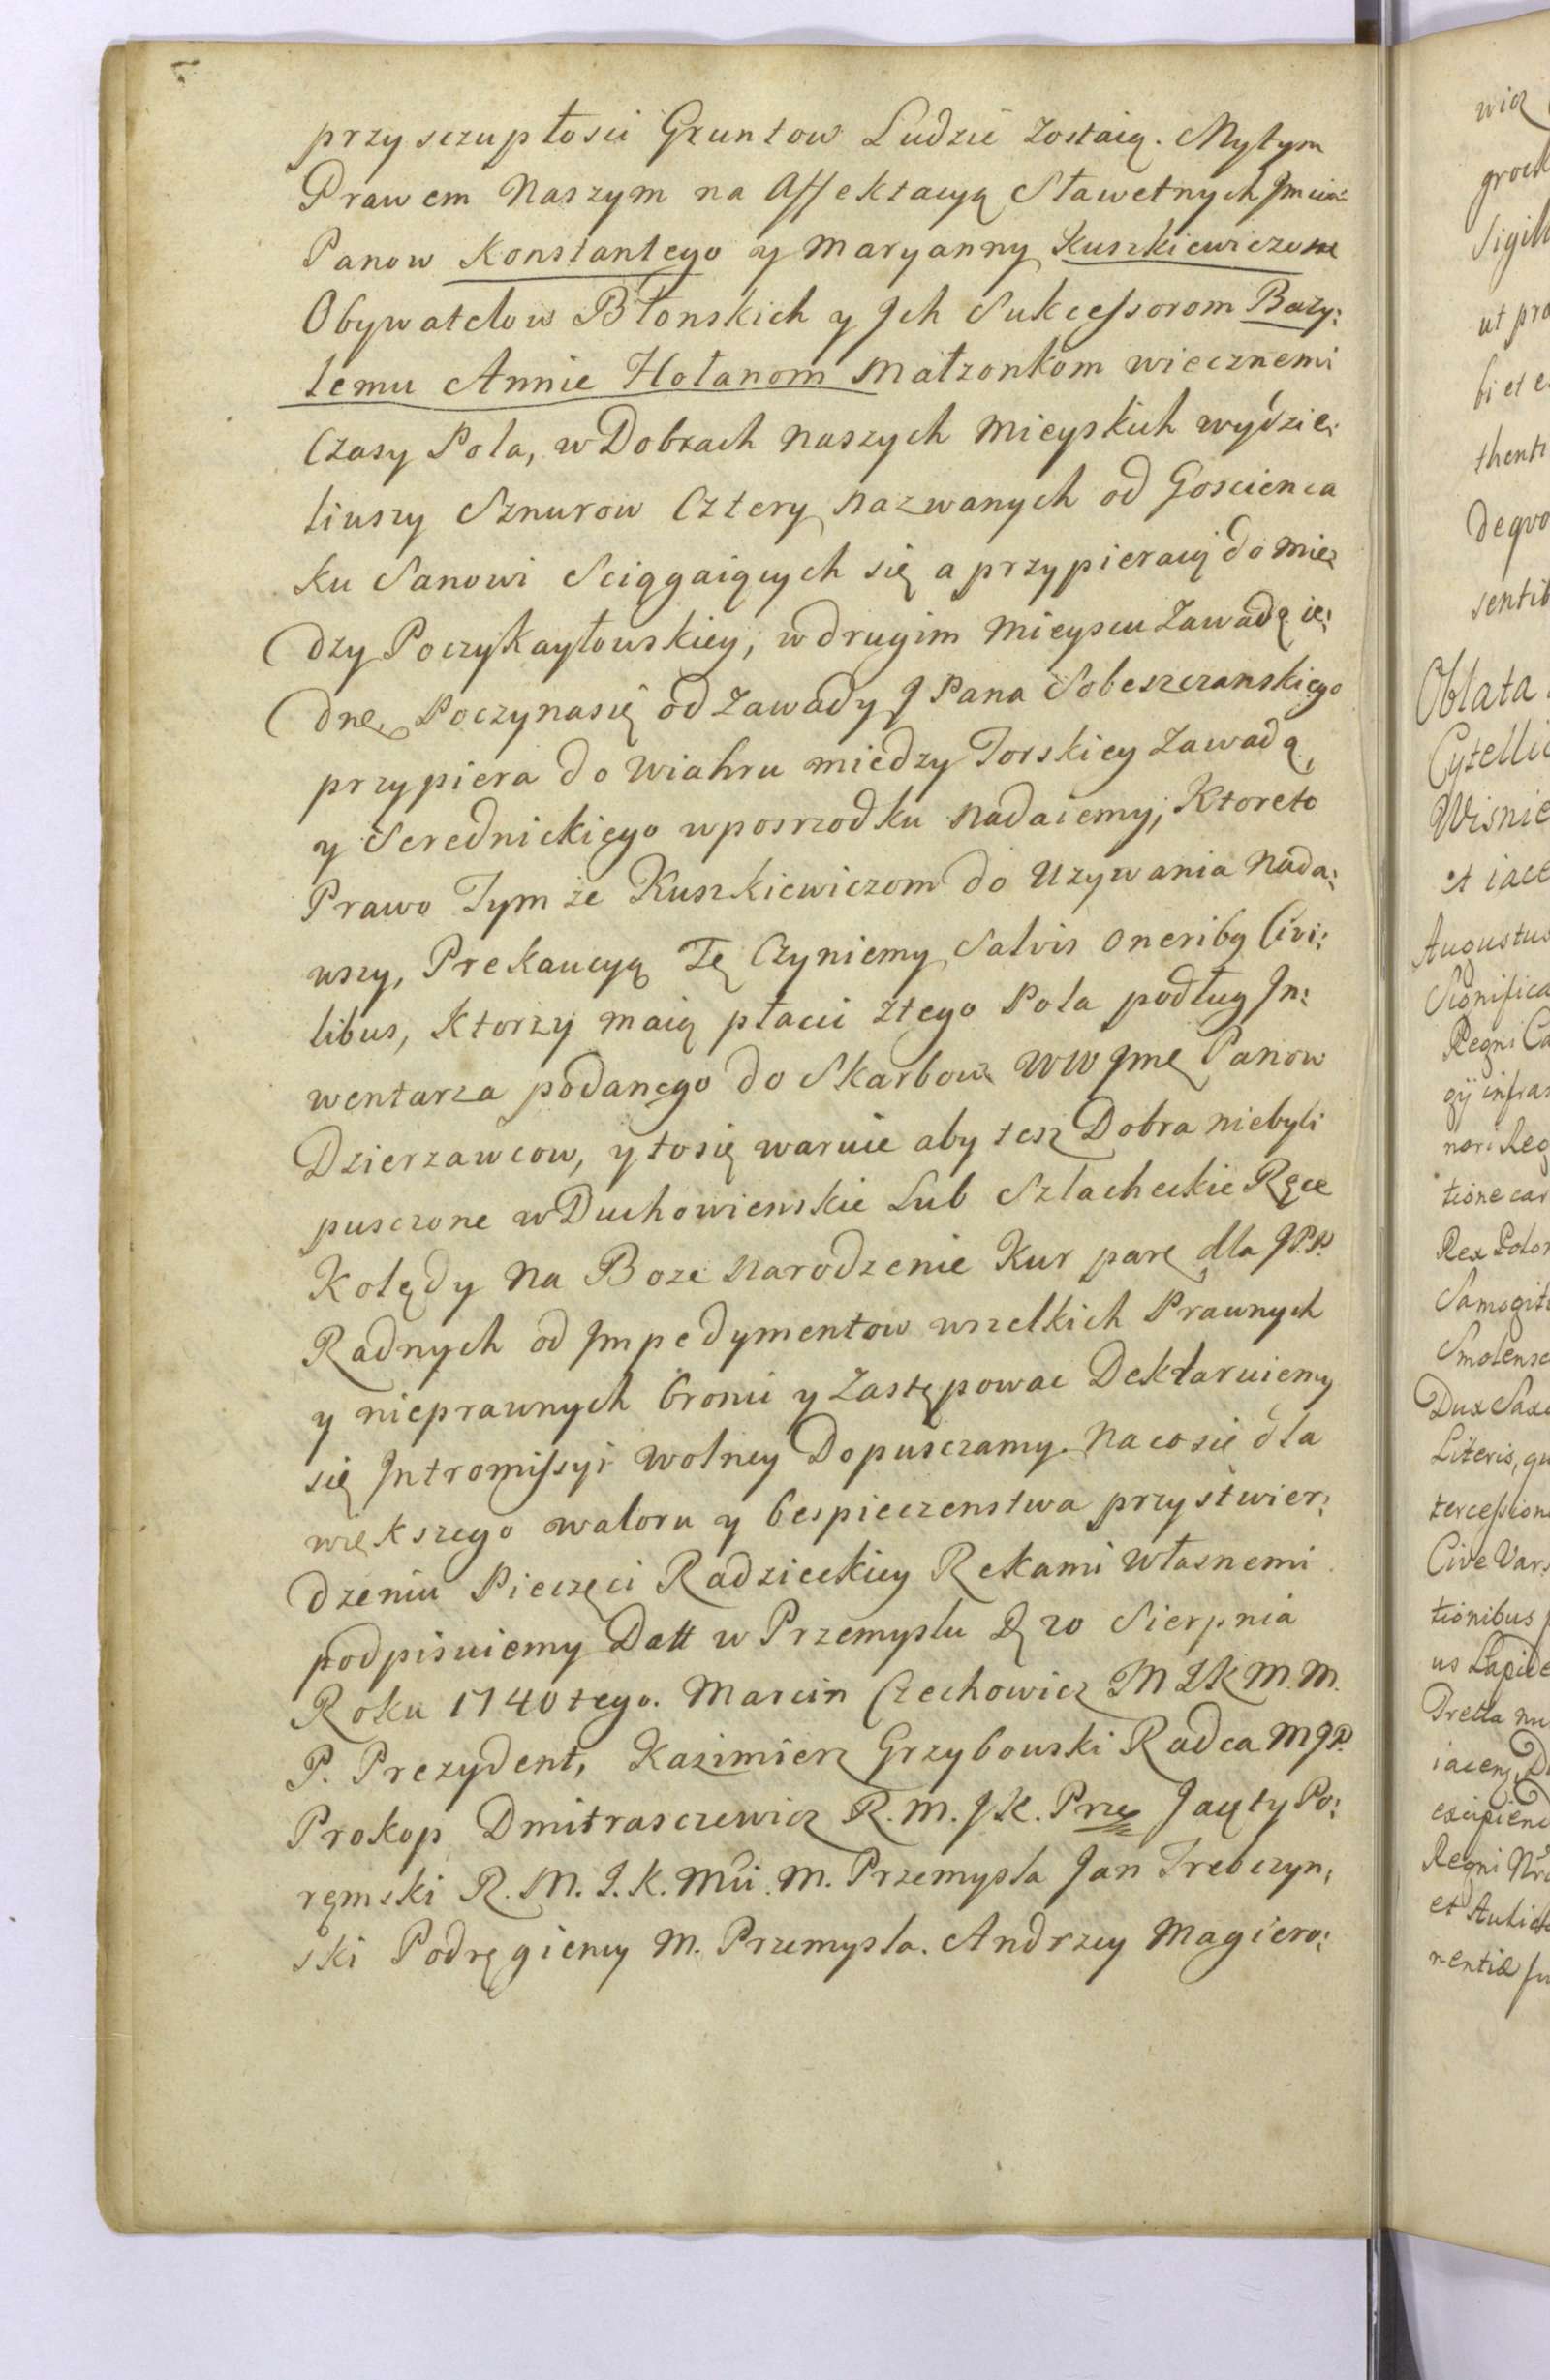 przy sczupłosci Gruntow Ludzie zostaią. My tym
Prawem Naszym na Affektacyą Sławetnych Jmciow
Panow Konstantego y Maryanny Kuszkiewiczow
Obywatelow Błonskich y Jch Sukcessorom Bazy:
lemu Annie Hołanom Małzonkom wiecznemi
Czasy Pola, w Dobrach Naszych Mieyskich wydzie:
liuszy Sznurow Cztery nazwanych od Goscienca
ku Sanowi Sciągaiących się a przypieraią do mie:
dzy Poczykayłowskiey, w drugim mieyscu Zawadę ie:
dnę, Poczyna się od Zawady J Pana Sobeszczanskiego
przypiera do Wiahru miedzy Torskiey Zawadą,
y Serednickiego w posrzodku nadaiemy; Ktoreto
Prawo Tym że Kuszkiewiczom do Uzywania Nada:
wszy, Prekaucyą Tę Czyniemy Salvis oneriby Civi:
libus, Ktorzy maią płacić z tego Pola podług In:
wentarza podanego do Skarbow WW Jmę Panow
Dzierzawcow, y to się waruie aby tesz Dobra niebyli
pusczone w Duchowienskie Lub Szlacheckie Ręce
Kolędy Na Boze Narodzenie Kur parę dla JPP.
Radnych od Jmpedymentow wszelkich Prawnych
y nieprawnych bronić y Zastępowac Deklaruiemy
się Jntromissyi wolney Dopusczamy. Na co sie dla
większego waloru y bespieczenstwa przy stwier:
dzeniu Pieczęci Radzieckiey Rekami własnemi
podpisuiemy Datt w Przemyslu D 20 Sierpnia
Roku 1740 tego. Marcin Czechowicz M J K M. M.
P. Prezydent, Kazimierz Grzybowski Radca M J P.
Prokop Dmitrasczewicz R. M. J K. Prze Jacęty Po:
ręmski R. M. J. K. Mci. M. Przemysla Jan Trebczyn:
ski Podręgieny M. Przemysla. Andrzey Magiero:
wicz
grock
Sigill
ut pro
bi et e
thenti
Dequo
sentib
Oblata
Cytelli
Wisnie
et iace
Augustus
Significa
Regni Ca
gij infra
nori Reg
tione car
Rex Polon
Samogiti
Smolensc
Dux Saxo
Literis, qu
tercession
Cive Vars
tionibus
us Lapide
Tretta nu
iacens D
excipiend
Regni
et
nentiæ